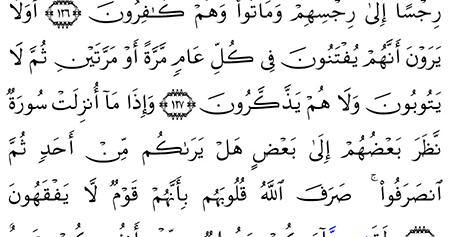 رِجْسًا إِلَىٰ رِجْسِهِمْ وَمَاتُوا۟ وَهُمْ كَـٰفِرُونَ ١٢٦ أَوَلَا
يَرَوْنَ أَنَّهُمْ يُفْتَنُونَ فِى كُلِّ عَامٍ مَّرَّةً أَوْ مَرَّتَيْنِ ثُمَّ لَا
يَتُوبُونَ وَلَا هُمْ يَذَّكَّرُونَ ١٢٧ وَإِذَا مَآ أُنزِلَتْ سُورَةٌ
نَّظَرَ بَعْضُهُمْ إِلَىٰ بَعْضٍ هَلْ يَرَىٰكُم مِّنْ أَحَدٍ ثُمَّ
ٱنصَرَفُوا۟ ۚ صَرَفَ ٱللَّهُ قُلُوبَهُم بِأَنَّهُمْ قَوْمٌ لَّا يَفْقَهُونَ